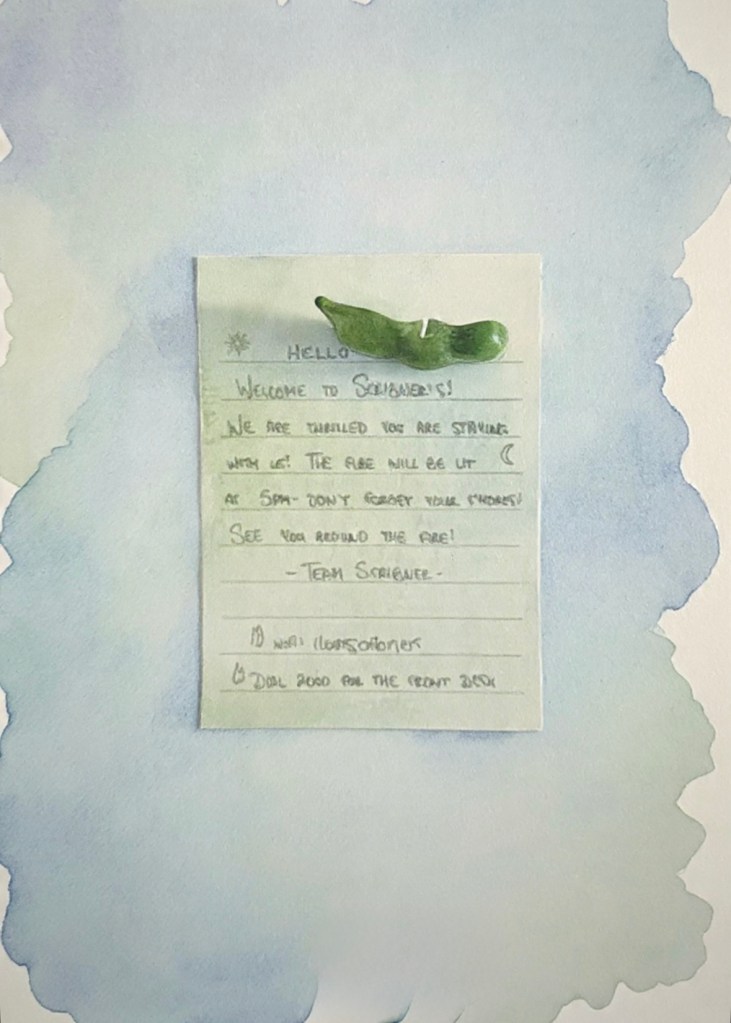 HELLO
WELCOME TO SCRIBNER'S!
WE ARE THRILLED YOU ARE STAYING
WITH US! THE FIRE WILL BE LIT
AT 5PM- DON'T FORGET YOUR S'MORES!
SEE YOU AROUND THE FIRE!
- TEAM SCRIBNER -
WIFI:
DIAL 2000 FOR THE FRONT DESK